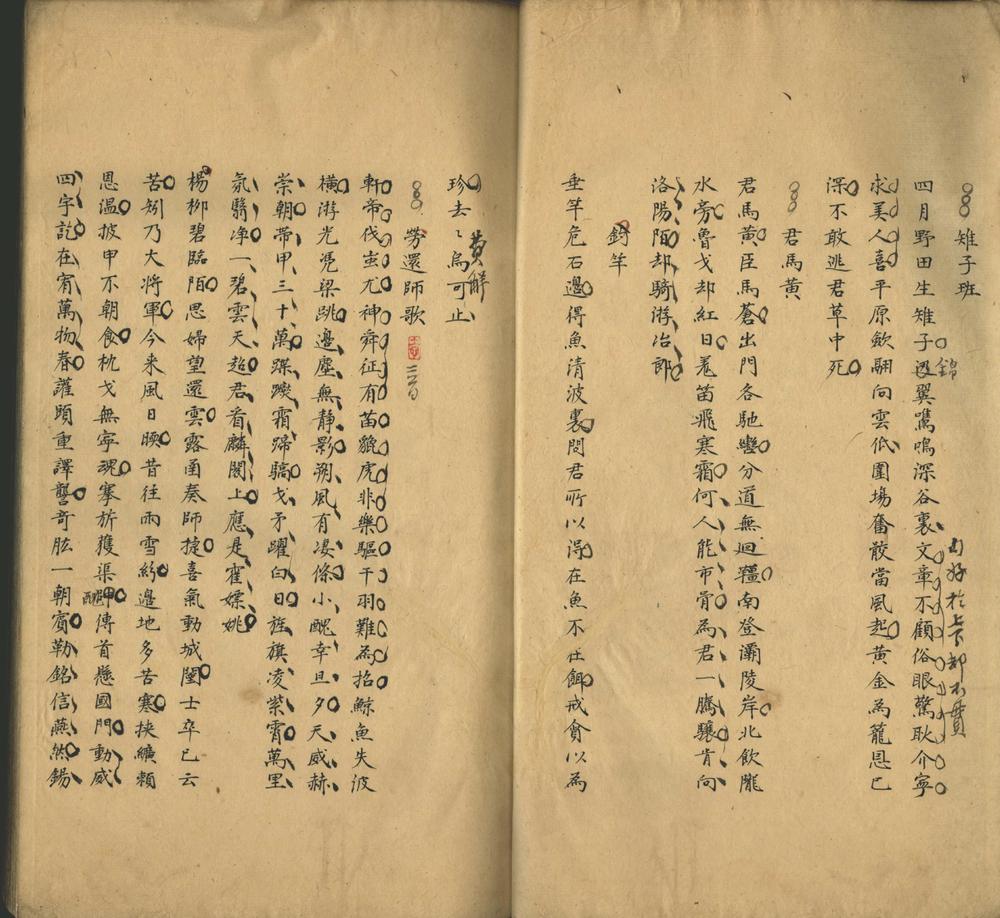 雉子班
四月野田生雉子㔩翼嘴鳴深谷裏文章不顧俗眼驚耿介寧
錦
求美人喜平原歛翮向雲低圍場奮散當風起黃金為籠恩已
深不敢逃君草中死
君馬黃
君馬黃臣馬蒼出門各馳轡分道無迴韁南登灞陵岸北飲隴
水旁魯戈却紅日羌笛飛寒霜何人能市骨為君一騰驤肯向
洛陽陌却騎游冶郎
釣竿
垂竿危石邊得魚清波裏問君所以得在魚不在餌戒貪以為
珍去〻烏可止
黃解
勞還師歌
軒帝伐蚩尤神舜征有苗貔虎非樂驅干羽難為招鯨魚失波
橫游光凭梁跳邊塵無靜影朔風有淒條小醜幸旦夕天威赫
崇朝帶甲三十萬蹀躞霜蹄驕戈矛躍白日旌旗凌紫霄萬里
氛翳净一碧雲天超君看麟閣上應是霍嫖姚
楊柳碧臨陌思婦望還雲露函奏師捷喜氣動城闉士卒已云
苦矧乃大將軍今来風日暖昔往雨雪紛邊地多苦寒挾纊頼
恩温披甲不朝食枕戈無寧魂搴旂獲渠醜傳首懸國門動威
四宇訖在宥萬物春謹頭重譯讋奇肱一朝賓勒銘信燕然錫